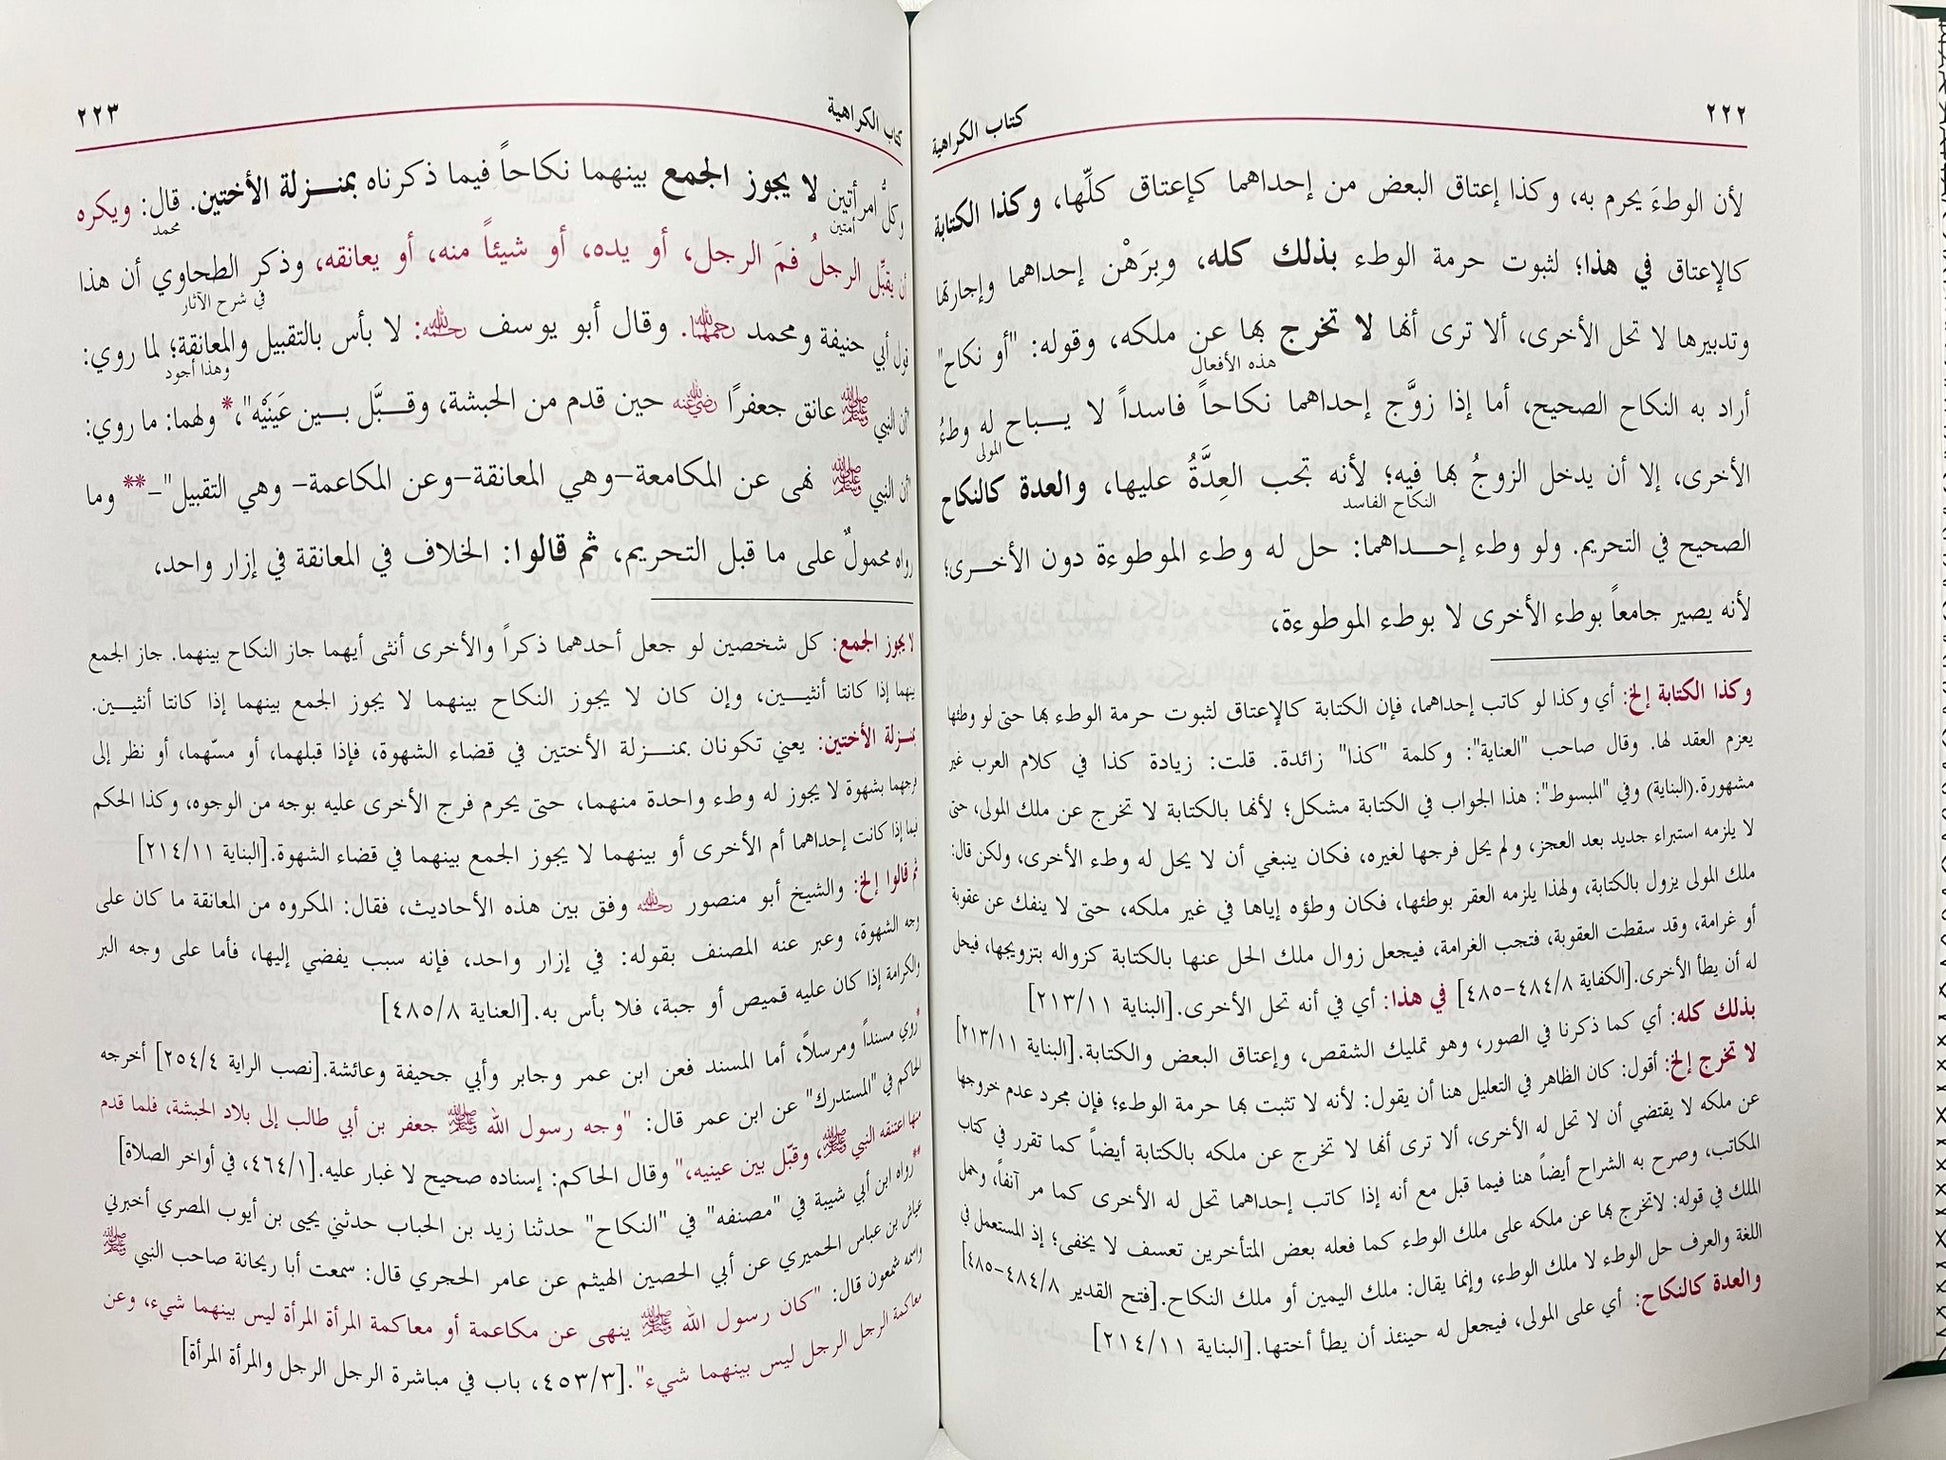 ٢٢٢
كتاب الكراهية
لأن الوطءَ يحرم به، وكذا إعتاق البعض من إحداهما كإعتاق كلِّها، وكذا الكتابة
كالإعتاق في هذا؛ لثبوت حرمة الوطء بذلك كله، وبِرَهْن إحداهما وإجارتها
وتدبيرها لا تحل الأخرى، ألا ترى أنها لا تخرج بها عن ملكه، وقوله: "أو نكاح"
هذه الأفعال
أراد به النكاح الصحيح، أما إذا زوَّج إحداهما نكاحاً فاسداً لا يـــباح له وطءُ
المولى
الأخرى، إلا أن يدخل الزوجُ بها فيه؛ لأنه تجب العِدَّةُ عليها، والعدة كالنكاح
النكاح الفاسد
الصحيح في التحريم. ولو وطء إحـــداهما: حل له وطء الموطوءة دون الأخـــرى؛
لأنه يصير جامعاً بوطء الأخرى لا بوطء الموطوءة،
وكذا الكتابة إلخ: أي وكذا لو كاتب إحداهما، فإن الكتابة كالإعتاق لثبوت حرمة الوطء بها حتى لو وطئها
يعزم العقد لها. وقال صاحب "العناية": وكلمة "كذا" زائدة. قلت: زيادة كذا في كلام العرب غير
مشهورة.(البناية) وفي "المبسوط": هذا الجواب في الكتابة مشكل؛ لأنها بالكتابة لا تخرج عن ملك المولى، حتى
لا يلزمه استبراء جديد بعد العجز، ولم يحل فرجها لغيره، فكان ينبغي أن لا يحل له وطء الأخرى، ولكن قال:
ملك المولى يزول بالكتابة، ولهذا يلزمه العقر بوطئها، فكان وطؤه إياها في غير ملكه، حتى لا ينفك عن عقوبة
أو غرامة، وقد سقطت العقوبة، فتجب الغرامة، فيجعل زوال ملك الحل عنها بالكتابة كزواله بتزويجها، فيحل
له أن يطأ الأخرى.[الكفاية ٤٨٤/٨-٤٨٥] في هذا: أي في أنه تحل الأخرى.[البناية ٢١٣/١١]
بذلك كله: أي كما ذكرنا في الصور، وهو تمليك الشقص، وإعتاق البعض والكتابة.[البناية ٢١٣/١١]
لا تخرج إلخ: أقول: كان الظاهر في التعليل هنا أن يقول: لأنه لا تثبت بها حرمة الوطء؛ فإن مجرد عدم خروجها
عن ملكه لا يقتضي أن لا تحل له الأخرى، ألا ترى أنها لا تخرج عن ملكه بالكتابة أيضاً كما تقرر في كتاب
المكاتب، وصرح به الشراح أيضاً هنا فيما قبل مع أنه إذا كاتب إحداهما تحل له الأخرى كما مر آنفاً، وحمل
الملك في قوله: لاتخرج بها عن ملكه على ملك الوطء كما فعله بعض المتأخرين تعسف لا يخفى؛ إذ المستعمل في
اللغة والعرف حل الوطء لا ملك الوطء، وإنما يقال: ملك اليمين أو ملك النكاح.[فتح القدير ٤٨٤/٨-٤٨٥]
والعدة كالنكاح: أي على المولى، فيجعل له حينئذ أن يطأ أختها.[البناية ٢١٤/١١]
كتاب الكراهية
٢٢٣
وكلُّ امرأتين لا يجوز الجمع بينهما نكاحاً فيما ذكرناه بمنـــزلة الأختين. قال: ويكره
أمتين
محمد
أن يقبِّل الرجلُ فمَ الرجل، أو يده، أو شيئاً منه، أو يعانقه، وذكر الطحاوي أن هذا
في شرح الآثار
قول أبي حنيفة ومحمد رحمهما الله. وقال أبو يوسف رحمه الله: لا بأس بالتقبيل والمعانقة؛ لما روي:
وهذا أجود
"أن النبي ﷺ عانق جعفرًا رضي الله عنه حين قدم من الحبشة، وقـــبَّل بـــين عَينَيْه"،* ولهما: ما روي:
"أن النبي ﷺ نهى عن المكامعة–وهي المعانقة–وعن المكاعمة– وهي التقبيل"–** وما
رواه محمولٌ على ما قبل التحريم، ثم قالوا: الخلاف في المعانقة في إزار واحد،
لا يجوز الجمع: كل شخصين لو جعل أحدهما ذكراً والأخرى أنثى أيهما جاز النكاح بينهما. جاز الجمع
بينهما إذا كانتا أنثيـــين، وإن كان لا يجوز النكاح بينهما لا يجوز الجمع بينهما إذا كانتا أنثيـــين.
بمنـــزلة الأختين: يعني تكونان بمنـــزلة الأختين في قضاء الشهوة، فإذا قبلهما، أو مسّهما، أو نظر إلى
فرجهما بشهوة لا يجوز له وطء واحدة منهما، حتى يحرم فرج الأخرى عليه بوجه من الوجوه، وكذا الحكم
فيما إذا كانت إحداهما أم الأخرى أو بينهما لا يجوز الجمع بينهما في قضاء الشهوة.[البناية ٢١٤/١١]
ثم قالوا إلخ: والشيخ أبو منصور رحمه الله وفق بين هذه الأحاديث، فقال: المكروه من المعانقة ما كان على
وجه الشهوة، وعبر عنه المصنف بقوله: في إزار واحد، فإنه سبب يفضي إليها، فأما على وجه البر
والكرامة إذا كان عليه قميص أو جبة، فلا بأس به.[العناية ٤٨٥/٨]
*روي مسنداً ومرسلاً، أما المسند فعن ابن عمر وجابر وأبي جحيفة وعائشة.[نصب الراية ٢٥٤/٤] أخرجه
الحاكم في "المستدرك" عن ابن عمر قال: "وجه رسول الله ﷺ جعفر بن أبي طالب إلى بلاد الحبشة، فلما قدم
منها اعتنقه النبي ﷺ، وقبّل بين عينيه،" وقال الحاكم: إسناده صحيح لا غبار عليه.[٤٦٤/١، في أواخر الصلاة]
**رواه ابن أبي شيبة في "مصنفه" في "النكاح" حدثنا زيد بن الحباب حدثني يحيى بن أيوب المصري أخبرني
عياش بن عباس الحميري عن أبي الحصين الهيثم عن عامر الحجري قال: سمعت أبا ريحانة صاحب النبي ﷺ
واسمه شمعون قال: "كان رسول الله ﷺ ينهى عن مكاعمة أو معاكمة المرأة المرأة ليس بينهما شيء، وعن
معاكمة الرجل الرجل ليس بينهما شيء".[٤٥٣/٣، باب في مباشرة الرجل الرجل والمرأة المرأة]